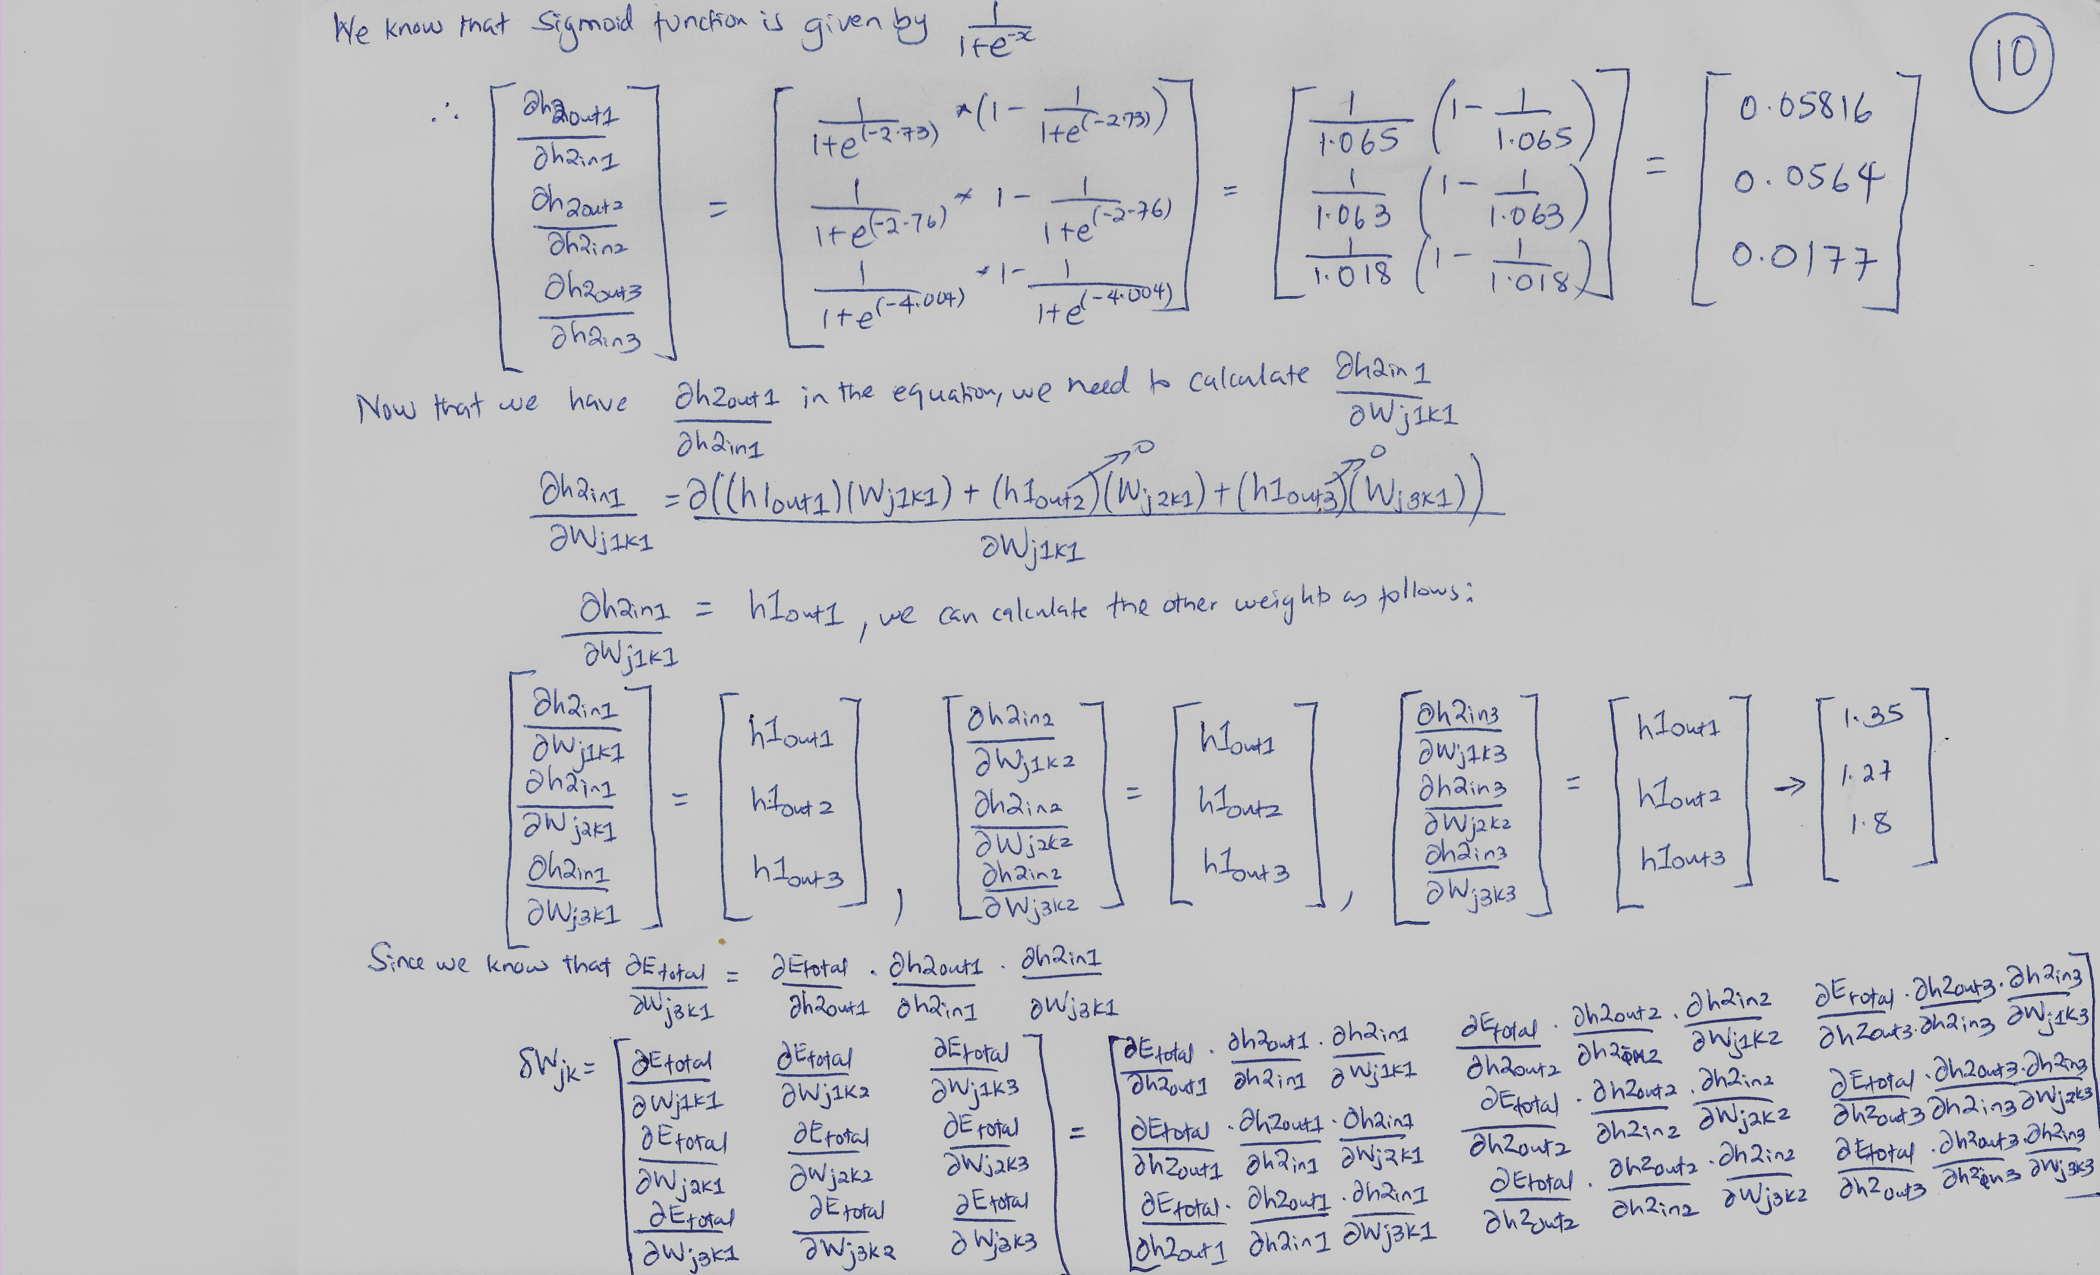 We know that Sigmoid function is given by 1/(1+e^-x)
10
∴ [∂h2out1/∂h2in1 ; ∂h2out2/∂h2in2 ; ∂h2out3/∂h2in3] = [1/(1+e^(-2.73)) * (1 - 1/(1+e^(-2.73))) ; 1/(1+e^(-2.76)) * 1 - 1/(1+e^(-2.76)) ; 1/(1+e^(-4.004)) * 1 - 1/(1+e^(-4.004))] = [1/1.065 (1 - 1/1.065) ; 1/1.063 (1 - 1/1.063) ; 1/1.018 (1 - 1/1.018)] = [0.05816 ; 0.0564 ; 0.0177]
Now that we have ∂h2out1/∂h2in1 in the equation, we need to calculate ∂h2in1/∂Wj1k1
∂h2in1/∂Wj1k1 = ∂((h1out1)(Wj1k1) + (h1out2)(Wj2k1)→0 + (h1out3)(Wj3k1)→0)/∂Wj1k1
∂h2in1/∂Wj1k1 = h1out1, we can calculate the other weights as follows:
[∂h2in1/∂Wj1k1 ; ∂h2in1/∂Wj2k1 ; ∂h2in1/∂Wj3k1] = [h1out1 ; h1out2 ; h1out3], [∂h2in2/∂Wj1k2 ; ∂h2in2/∂Wj2k2 ; ∂h2in2/∂Wj3k2] = [h1out1 ; h1out2 ; h1out3], [∂h2in3/∂Wj1k3 ; ∂h2in3/∂Wj2k2 ; ∂h2in3/∂Wj3k3] = [h1out1 ; h1out2 ; h1out3] → [1.35 ; 1.27 ; 1.8]
Since we know that ∂Etotal/∂Wj3k1 = ∂Etotal/∂h2out1 . ∂h2out1/∂h2in1 . ∂h2in1/∂Wj3k1
δWjk = [∂Etotal/∂Wj1k1 ∂Etotal/∂Wj1k2 ∂Etotal/∂Wj1k3 ; ∂Etotal/∂Wj2k1 ∂Etotal/∂Wj2k2 ∂Etotal/∂Wj2k3 ; ∂Etotal/∂Wj3k1 ∂Etotal/∂Wj3k2 ∂Etotal/∂Wj3k3] = [∂Etotal/∂h2out1 . ∂h2out1/∂h2in1 . ∂h2in1/∂Wj1k1 ∂Etotal/∂h2out2 . ∂h2out2/∂h2in2 . ∂h2in2/∂Wj1k2 ∂Etotal/∂h2out3 . ∂h2out3/∂h2in3 . ∂h2in3/∂Wj1k3 ; ∂Etotal/∂h2out1 . ∂h2out1/∂h2in1 . ∂h2in1/∂Wj2k1 ∂Etotal/∂h2out2 . ∂h2out2/∂h2in2 . ∂h2in2/∂Wj2k2 ∂Etotal/∂h2out3 . ∂h2out3/∂h2in3 . ∂h2in3/∂Wj2k3 ; ∂Etotal/∂h2out1 . ∂h2out1/∂h2in1 . ∂h2in1/∂Wj3k1 ∂Etotal/∂h2out2 . ∂h2out2/∂h2in2 . ∂h2in2/∂Wj3k2 ∂Etotal/∂h2out3 . ∂h2out3/∂h2in3 . ∂h2in3/∂Wj3k3]